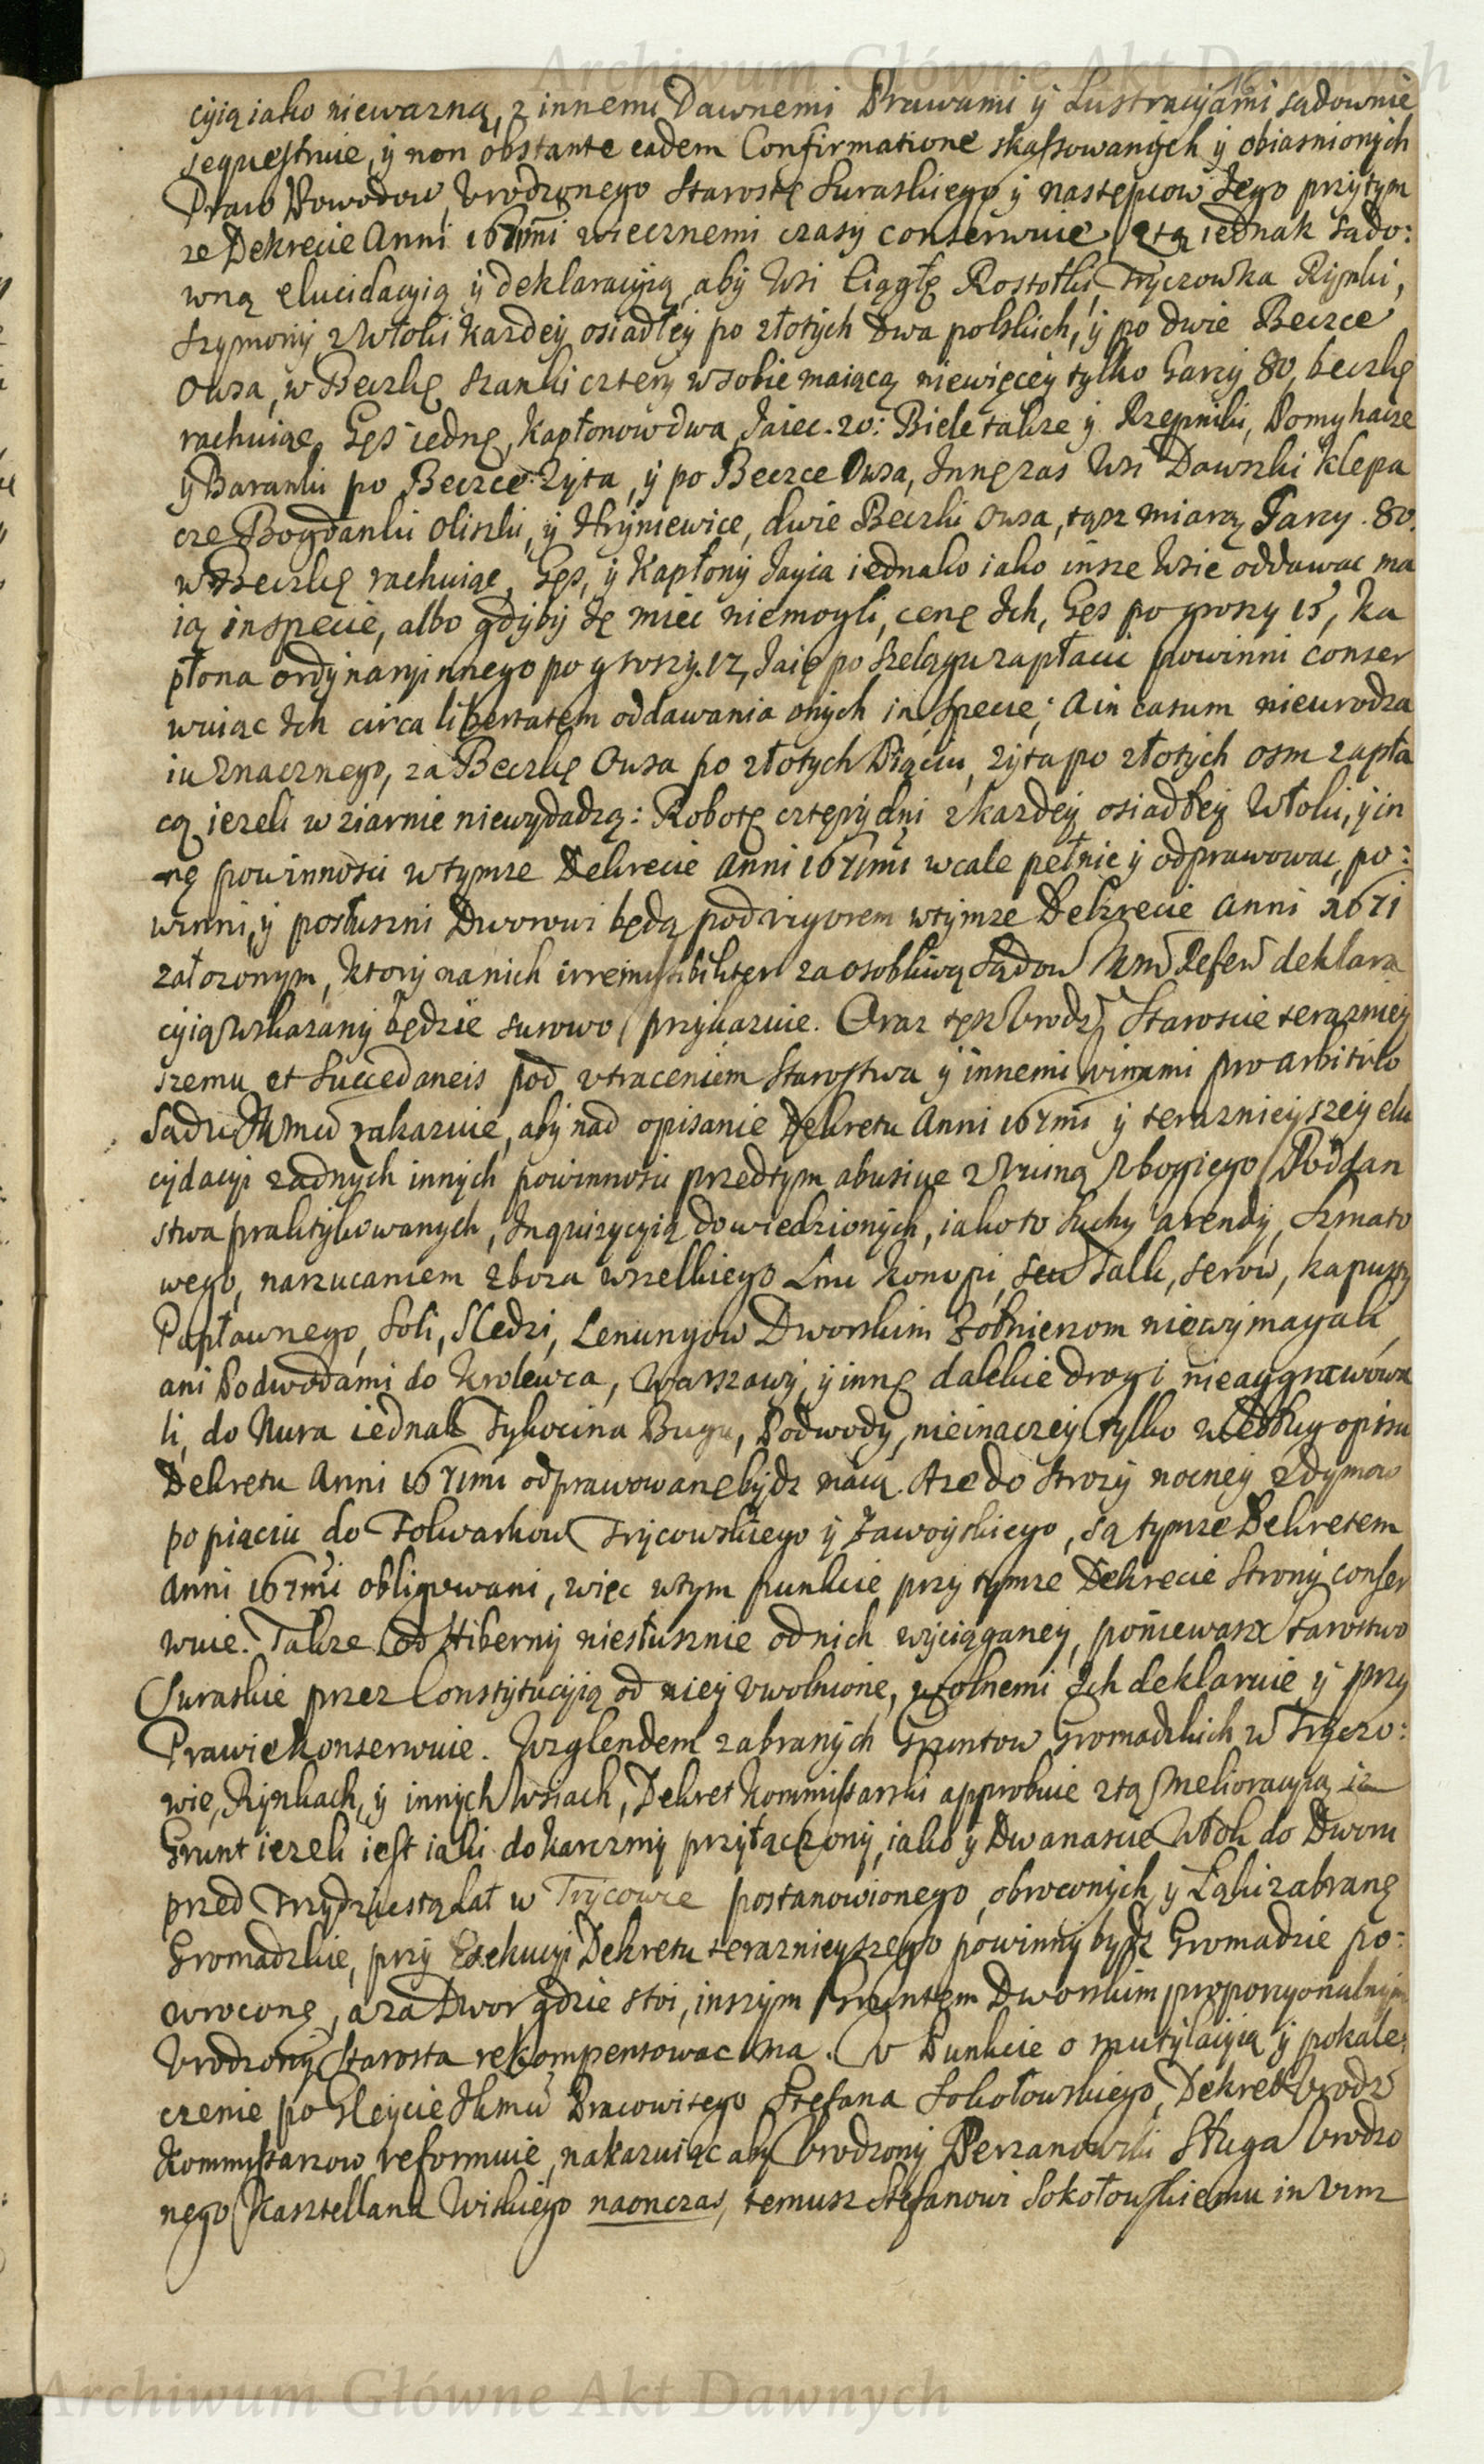 Archiwum Główne Akt Dawnych
cyią iako niewazną, z innemi Dawnemi Prawami y Lustracyiami sądownie
sequestruie, y non obstante eadem Confirmatione skassowanych y obiasnionych
Praw Dowodow, Vrodzonego Starostę Suraskiego y następcow Jego przytym
ze Dekrecie Anni 1671mi wiecznemi czasy conserwuie, z tą iednak sądo:
wną elucidacyią y deklaracyią, aby Wsi Ciągłe Rostołki, Tryczowka Rynki,
Szymony, z Włoki kazdey osiadłey po złotych dwa polskich, y po dwie Beczce
Owsa, w Beczkę szanki cztery w sobie maiącą niewięcey tylko Garcy 80, beczkę
rachuiąc, Gęś iednę, Kapłonow dwa Jaiec. 20: Biele takze y Rzepniki, Pomyhacze
y Baranki po Beczce Zyta, y po Beczce Owsa, Innę zas Wsi Dawszki Klepa
cze Bogdanki Oliszki, y Hryniewice, dwie Beczki Owsa, tąsz miarą Garcy. 80.
w Beczkę rachuiąc, Gęś, y Kapłony Jayia iednako iako insze Wsie oddawac ma
ią in specie, albo gdyby Ię miec niemogli, cenę Ich, Gęś po groszy 15, Ka
płona ordynaryinnego po groszy. 12, Jaię po szelągu zapłacic powinni conser
wuiąc Ich circa libertatem oddawania onych in specie; A in casum nieurodza
iu znacznego, za Beczkę Owsa po złotych Pięciu, zyta po złotych osm zapła
cą iezeli w ziarnie niewydadzą: Robotę cztery dni z kazdey osiadłey Włoki, y in
nę powinnosci w tymze Dekrecie Anni 1671mi wcale pełnic y odprawowac, po:
winni, y posłuszni Dworowi będą pod rigorem w tymze Dekrecie Anni 1671
załozonym, ktory na nich irremissibiliter za osobliwą Sądow Kmw Refew deklara
cyią wskazany będzie surowo przykazuie. Oraz tęsz Vrodz. Staroscie terazniey
szemu et Succedaneis pod vtraceniem Starostwa y innemi winami pro arbitrio
Sądu JKmci zakazuie, aby nad opisanie Dekretu Anni 1671mi y terazniey szey elu
cydacyi zadnych innych powinnosci przedtym abusive z ruiną Vbogiego Poddan
stwa praktykowanych, Inquizycyią dowiedzionych, iako to suchy arendy, Szmato
wego, narzucaniem zboza wszelkiego Lnu Konopi, seu Talk, serow, kapusty
Popławnego, Soli, Sledzi, Lenungow Dworskim Zołnierzom niewymagali,
ani Podwodami do Krolewca, Warszawy, y innę dalekie drogi nieaggrawowa
li, do Nura iednak Tykocina Bugu, Podwody, nieinaczey tylko według opisu
Dekretu Anni 1671mi odprawowanę bydz maią. Aze do Strozy nocney z dymow
po piąciu do Folwarkow Trycowskiego y Zawoyskiego, są tymze Dekretem
Anni 1671mi obligowani, więc w tym punkcie przy tymze Dekrecie Strony conser
wuie. Takze od Hiberny niesłusznie od nich wyciąganey, poniewasz Starostwo
Suraskie przez Constytucyią od niey vwolnione, wolnemi Ich deklaruie y przy
Prawie konserwuie. Wzglendem zabranych Gruntow Gromadzkich w Tryczo:
wie, Rynkach, y innych Wsiach, Dekret Kommissarski approbuie z tą melioracyią iz
Grunt iezeli iest iaki do karczmy przyłączony, iako y Dwanascie Włok do Dworu
przed Trzydziestą Lat w Trycowce postanowionego, obroconych, y Łąki zabranę
Gromadzkie, przy Exekucyi Dekretu terazniey szego powinny bydz Gromadzie po:
wroconę, a za Dwor, gdzie stoi, inszym Gruntem Dworskim proporcyonalnym
Vrodzony Starosta rekompensowac ma. W Punkcie o mutylacyią y pokale:
czenie po Gleycie JKmci Pracowitego Stefana Sokołowskiego, Dekret Vrodz
Kommissarzow reformuie, nakazuiąc aby Vrodzony Perzanowski Sługa Vrodzo
nego Kasztellana Wiskiego naonczas, temusz Stefanowi Sokołowskiemu in vim
Archiwum Główne Akt Dawnych